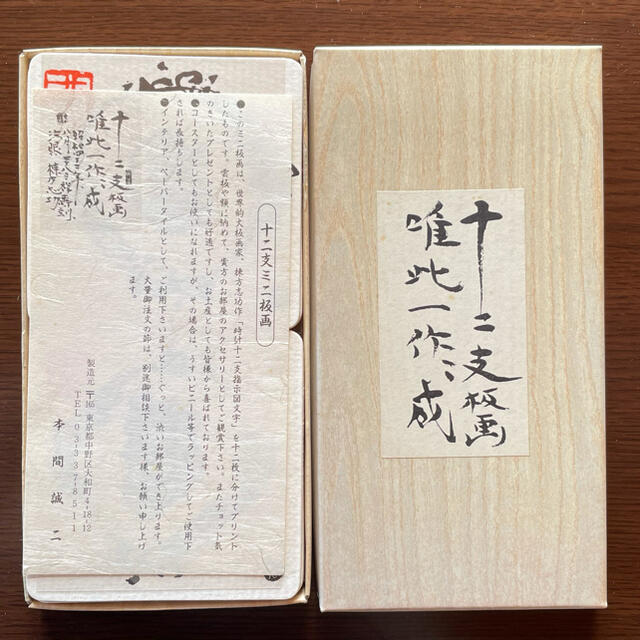 十二支板画
唯此一作、成
十二支ミニ板画
●このミニ板画は、世界的大板画家、棟方志功作「時計十二支指示図文字」を十二枚に分けてプリント
したものです。賞板や額に納めて、貴方のお部屋のアクセサリーとしてご観賞下さい。またチョット気
のきいたプレゼントとしても好適ですし、お土産としても皆様から喜ばれております。
●コースターとしてもお使いになれますが、その場合は、うすいビニール等でラッピングしてご使用下
されば長持ちします。
●インテリア、ペーパータイルとして、ご利用下さいますと……ぐっと、渋いお部屋ができ上ります。
大量御注文の節は、別途御相談下さいます様、お願い申し上げ
ます。
製造元 〒165 東京都中野区大和町4-18-12
TEL 03-337-8511
本間誠二
十二支板画
唯此一作、成